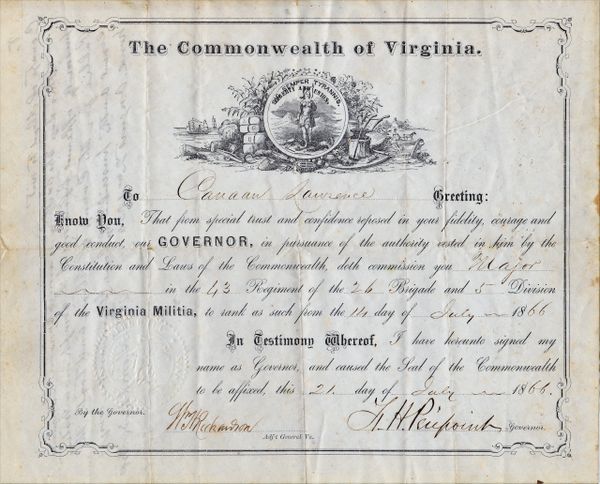 The Commonwealth of Virginia.
To Canaan Lawrence Greeting:
Know You, That from special trust and confidence reposed in your fidelity, courage and
good conduct, our GOVERNOR, in pursuance of the authority vested in him by the
Constitution and Laws of the Commonwealth, doth commission you Major
in the 43 Regiment of the 26 Brigade and 5 Division
of the Virginia Militia, to rank as such from the 14 day of July 1866
In Testimony Whereof, I have hereunto signed my
name as Governor, and caused the Seal of the Commonwealth
to be affixed, this 21. day of July 1866.
By the Governor.
Wm H Richardson
Adj't General Va.
F. H. Peirpoint Governor.